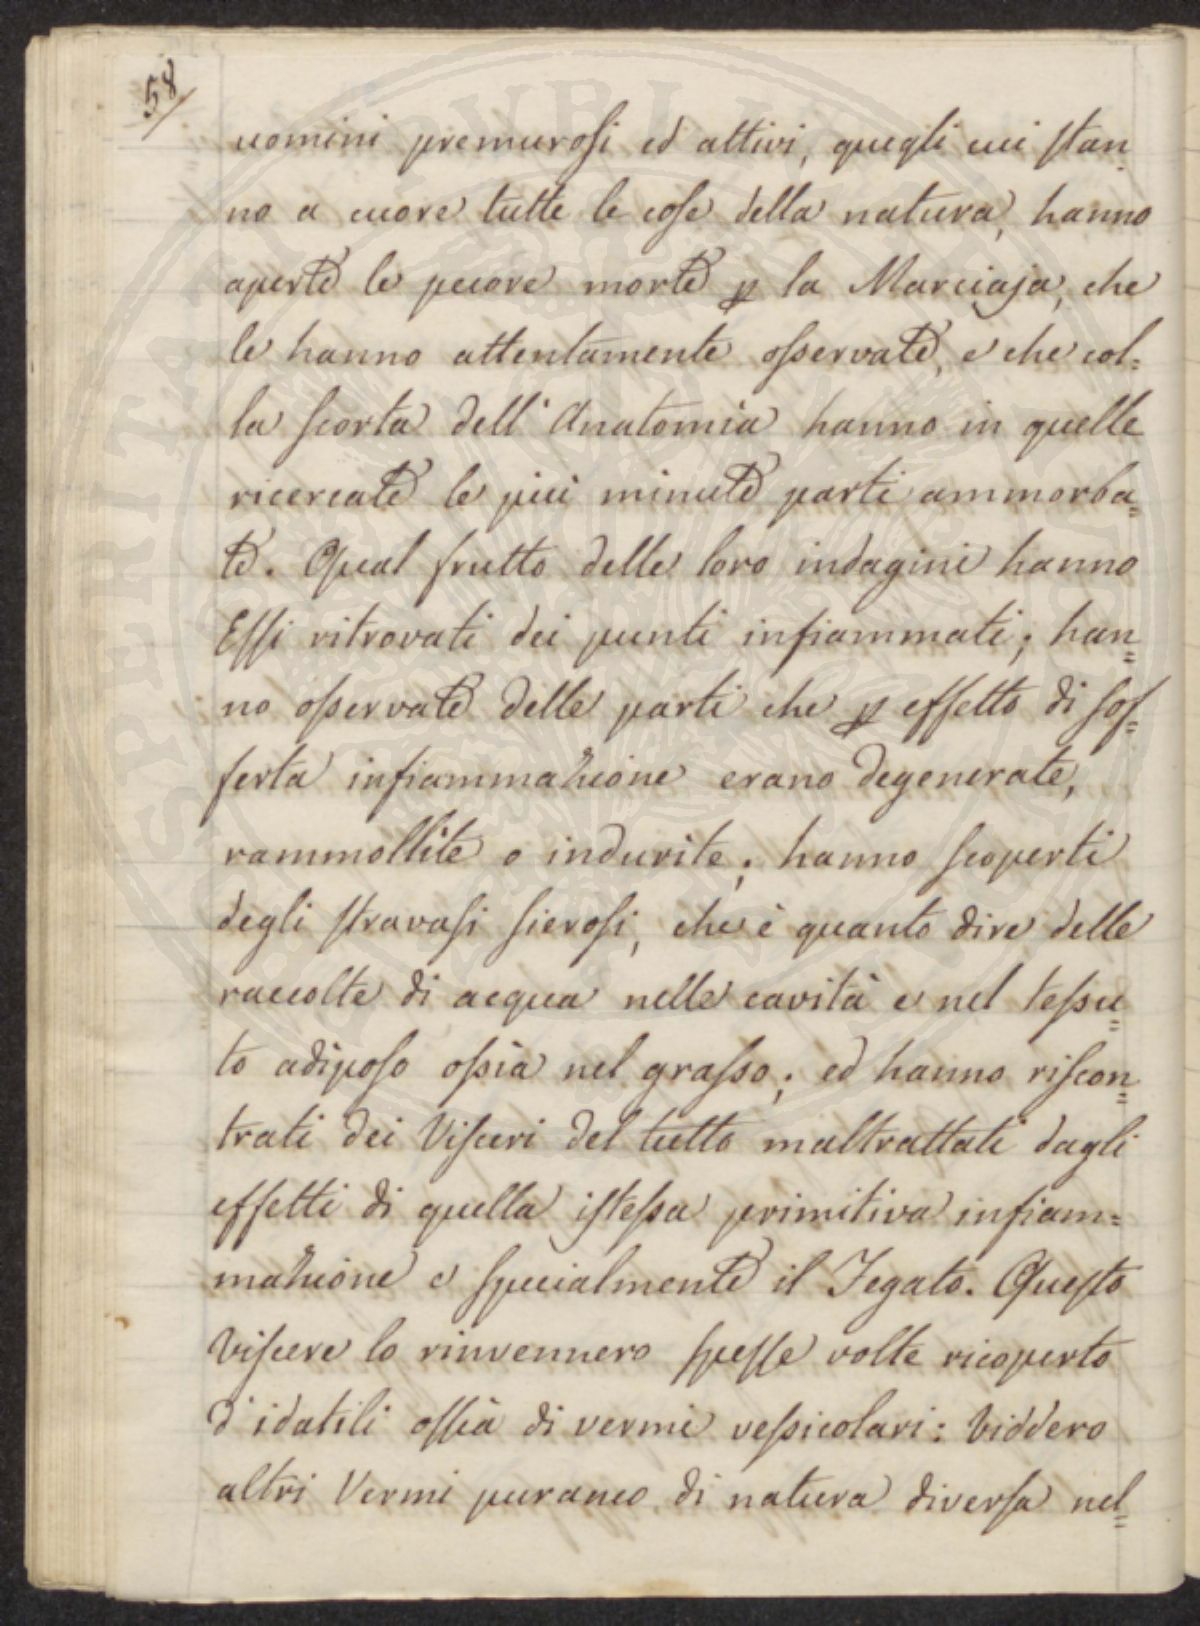 58
uomini premurosi ed attivi, quegli cui stan
no a cuore tutte le cose della natura, hanno
aperte le pecore morte p la Marciaja, che
le hanno attentamente osservate, e che col=
la scorta dell'Anatomia hanno in quelle
ricercate le più minute parti ammorba=
te. Qual frutto delle loro indagini hanno
Essi ritrovati dei punti infiammati; han=
no osservate delle parti che p effetto di sof=
ferta infiammazione erano degenerate,
rammollite o indurite; hanno scoperti
degli stravasi sierosi, che è quanto dire delle
raccolte di acqua nelle cavità e nel tessu=
to adiposo ossia nel grasso; ed hanno riscon=
trati dei Visceri del tutto maltrattati dagli
effetti di quella istessa primitiva infiam=
mazione e specialmente il Fegato. Questo
viscere lo rinvennero spesse volte ricoperto
d'idatili ossia di vermi vessicolari: viddero
altri Vermi puranco di natura diversa nel=